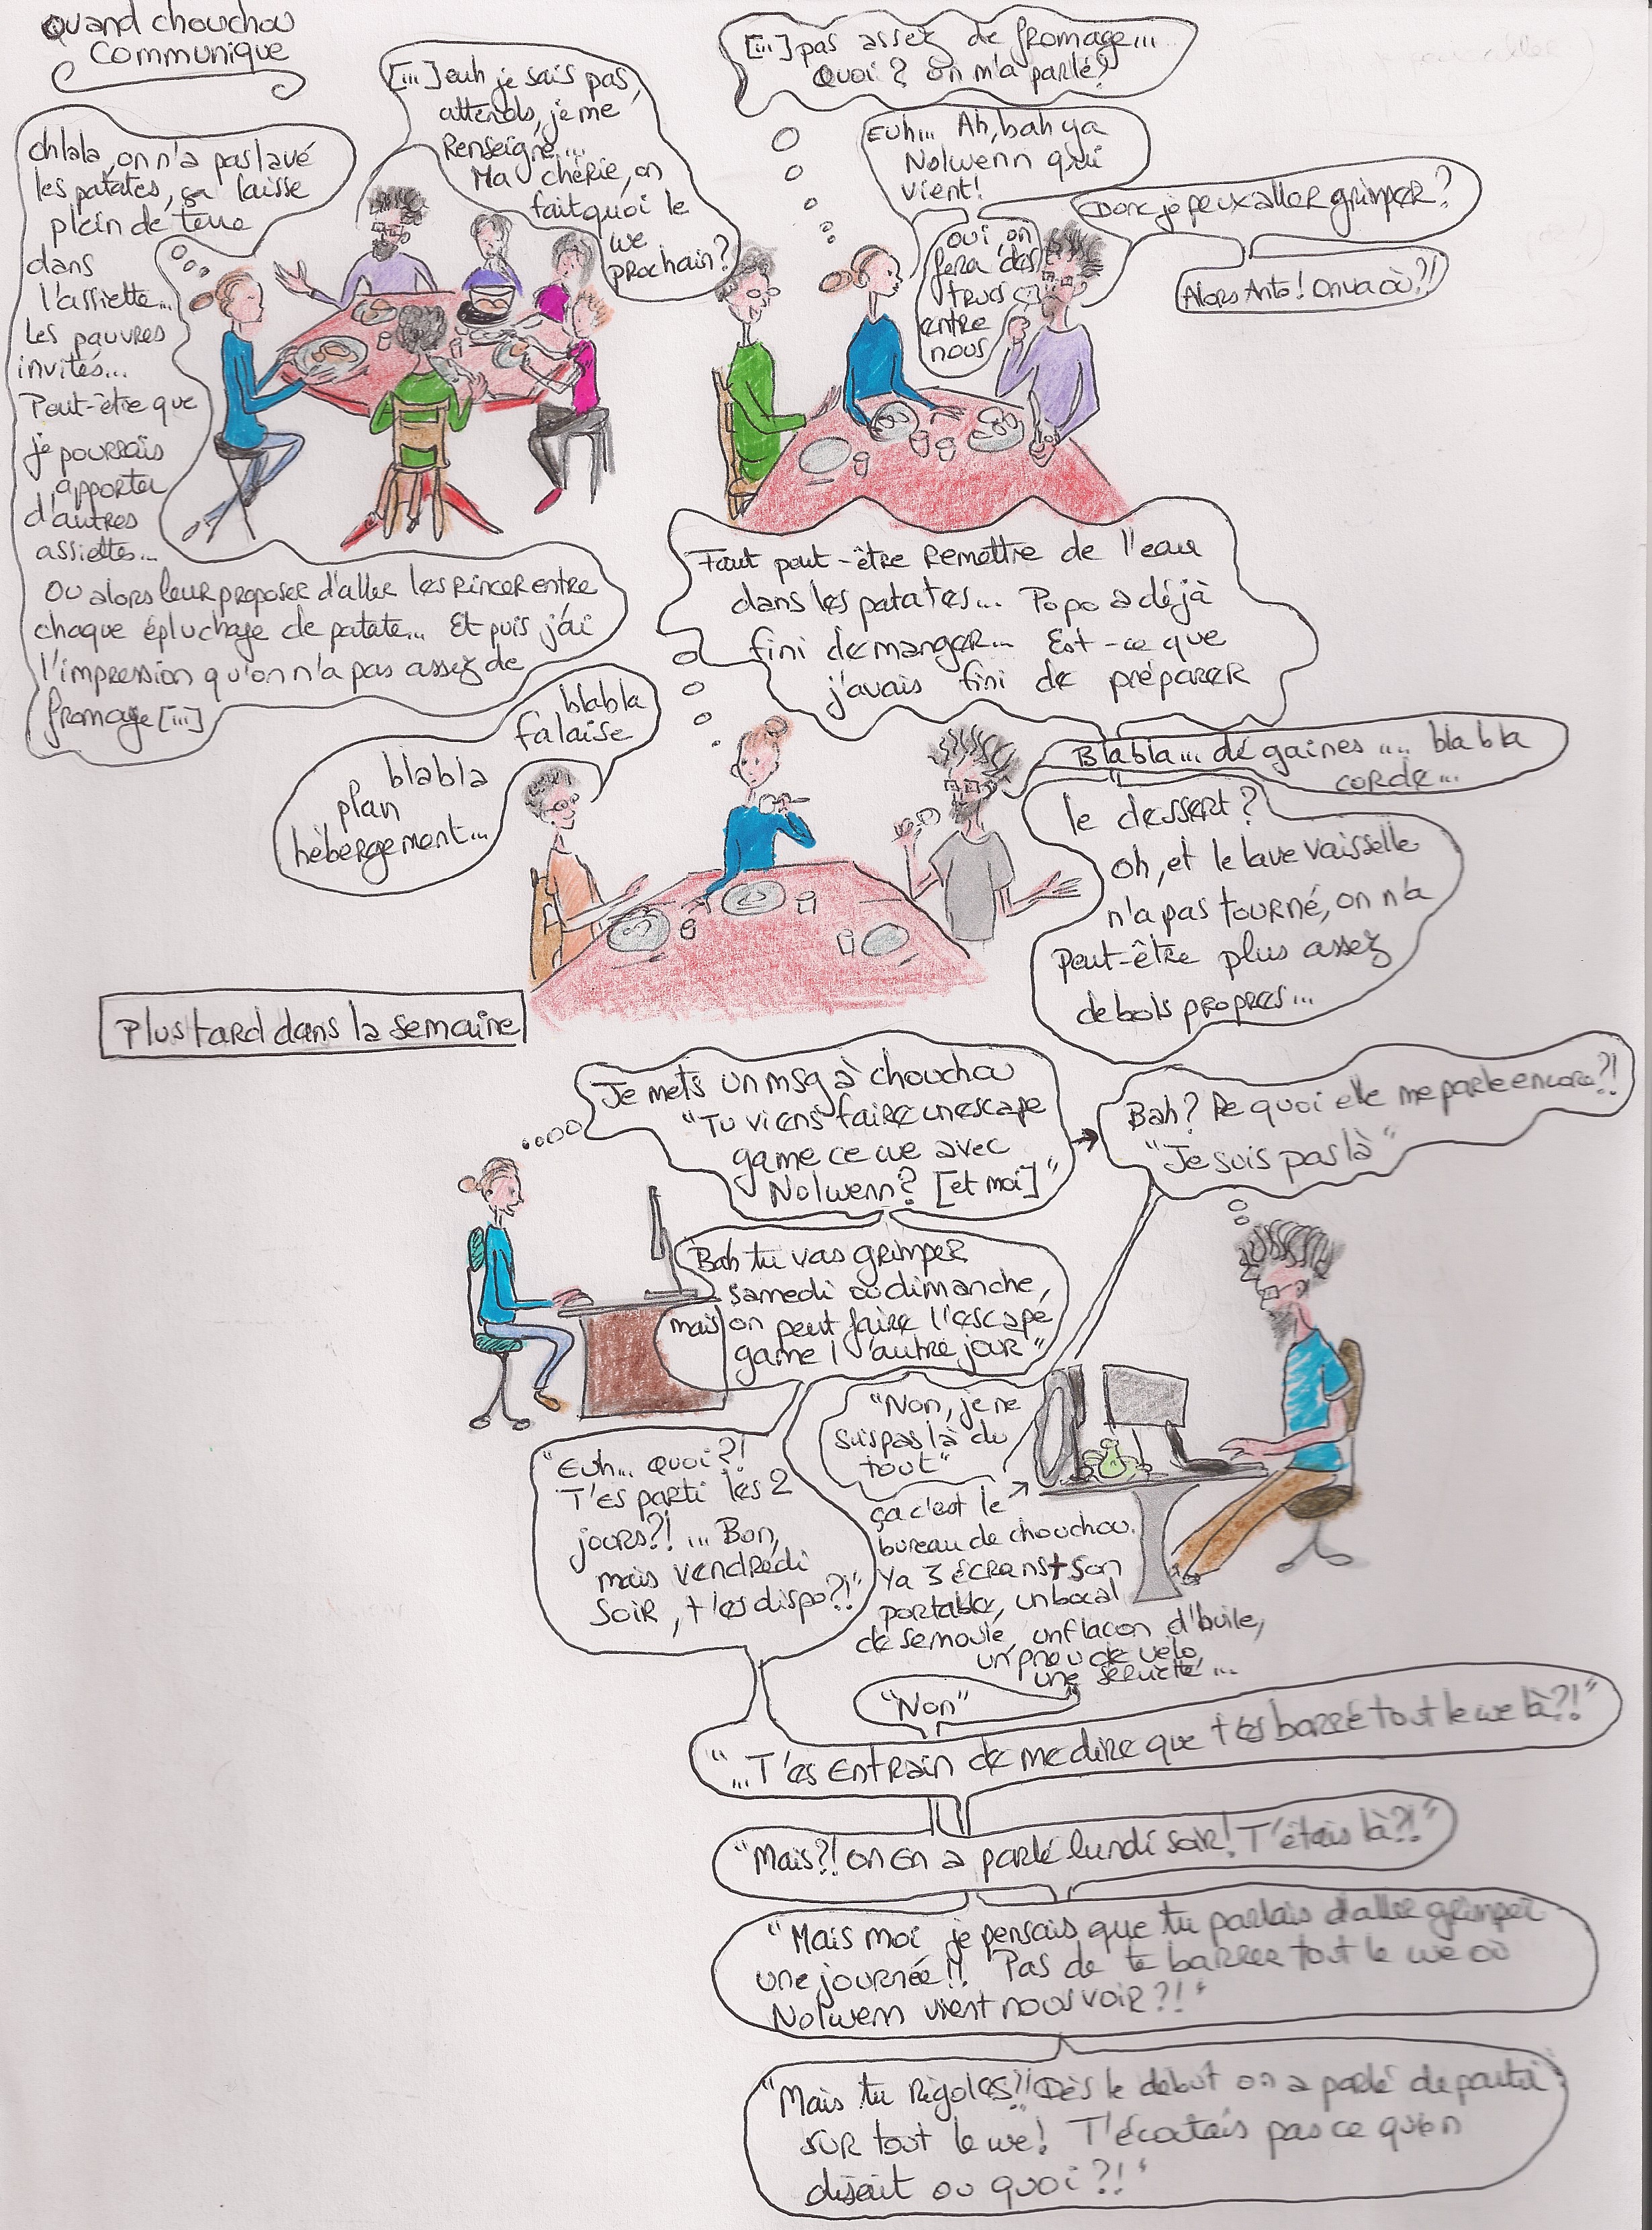 Quand chouchou
communique
ohlala, on n'a pas lavé
les patates, ça laisse
plein de terre
dans
l'assiette...
Les pauvres
invités...
Peut-être que
je pourrais
apporter
d'autres
assiettes...
Ou alors leur proposer d'aller les rincer entre
chaque épluchage de patate... Et puis j'ai
l'impression qu'on n'a pas assez de
fromage [...]
[...] euh je sais pas,
attends, je me
Renseigne...
Ma chérie, on
fait quoi le
we
prochain?
[...] pas assez de fromage...
Quoi? on m'a parlé?
Euh... Ah, bah ya
Nolwenn qui
vient!
Donc je peux aller grimper?
oui on
fera des
trucs
entre
nous
Alors Anto! On va où?!
Faut peut-être remettre de l'eau
dans les patates... Popo a déjà
fini de manger... Est-ce que
j'avais fini de préparer
le dessert?
oh, et le lave vaisselle
n'a pas tourné, on n'a
peut-être plus assez
de bols propres...
blabla
falaise
blabla
plan
hébergement...
Blabla... dégaines .... blabla
corde...
Plus tard dans la semaine
Je mets un msg à chouchou
"Tu viens faire un escape
game ce we avec
Nolwenn? [et moi]"
Bah? De quoi elle me parle encore?!
"Je suis pas là"
Bah tu vas grimper
samedi ou dimanche,
mais on peut faire l'escape
game l'autre jour"
"Non, je ne
suis pas là du
tout"
"Euh... quoi?!
T'es parti les 2
jours?! ... Bon,
mais vendredi
soir, t'es dispo?!"
ça c'est le
bureau de chouchou.
Ya 3 écrans + son
portable, un bocal
de semoule, un flacon d'huile,
un pneu de vélo,
une serviette...
"Non"
"...T'es entrain de me dire que t'es barré tout le we là?!"
"Mais?! on en a parlé lundi soir! T'étais là?!"
"Mais moi je pensais que tu parlais d'aller grimper
une journée!! Pas de te barrer tout le we où
Nolwenn vient nous voir?!"
"Mais tu rigoles?! Dès le début on a parlé de partir
sur tout le we! T'écoutais pas ce qu'on
disait ou quoi?!"